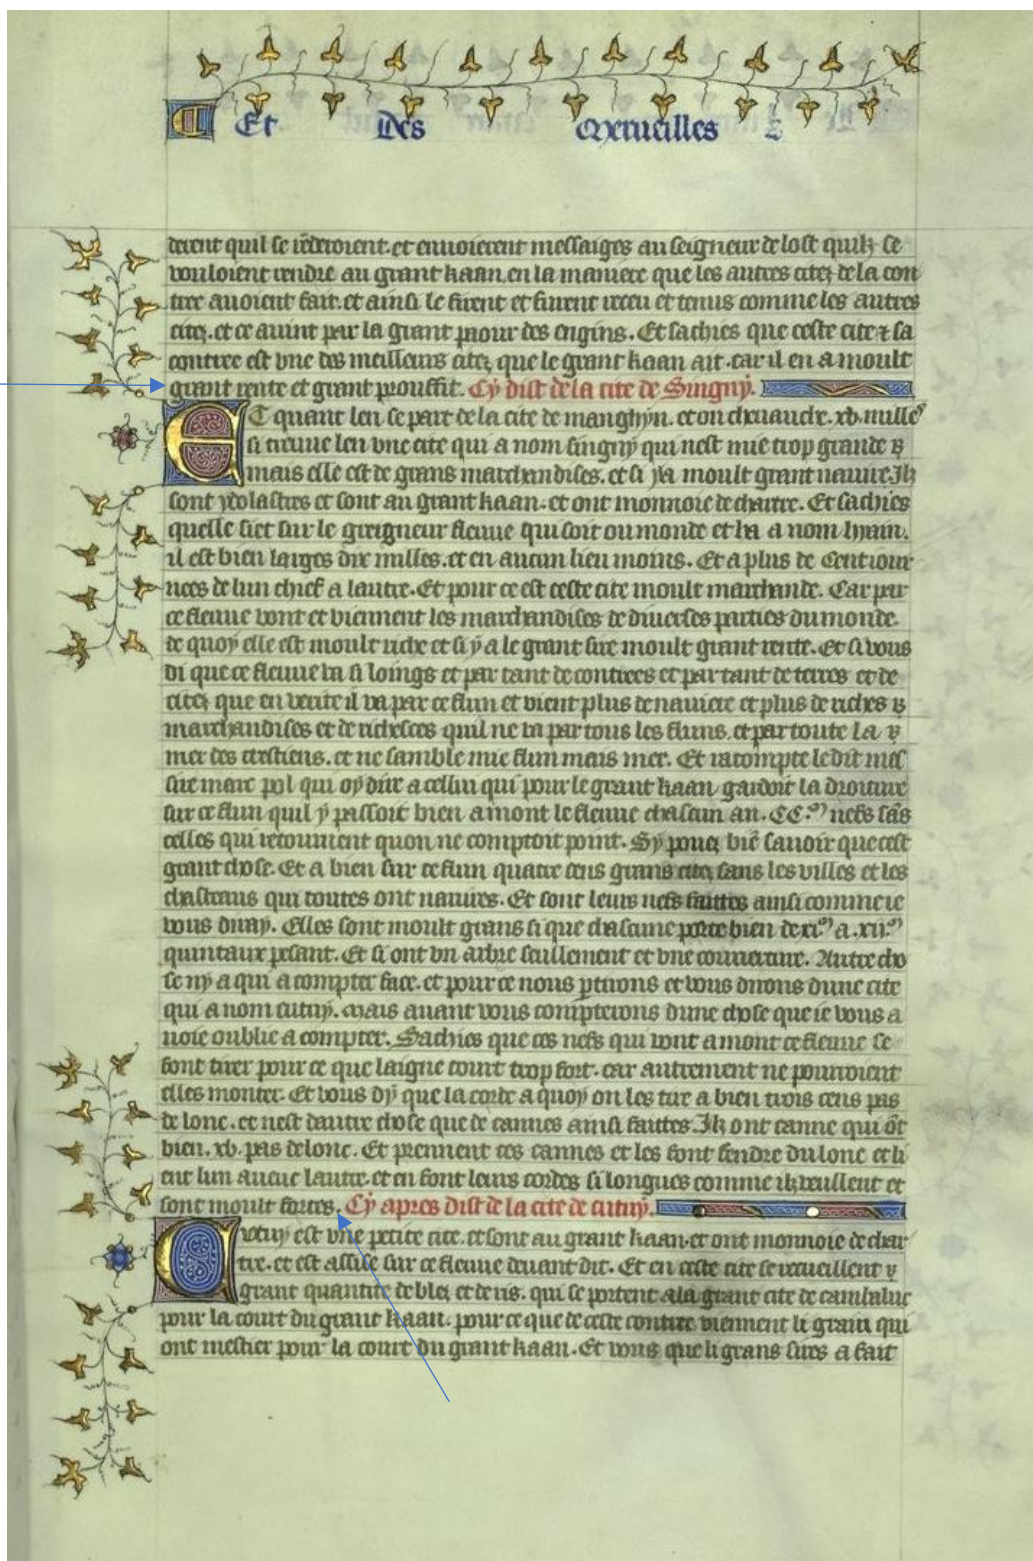 Et Des Merueilles
derent quil se rēderoient. et enuoierent messaiges au seigneur de lost quilz se
vouloient rendre au grant kaan. en la maniere que les autres citez de la con
tree auoient fait. et ainsi le firent et furent receu et tenus comme les autres
citez. et ce auint par la grant paour des engins. Et sachies que ceste cite ⁊ sa
contree est vne des meilleurs citez que le grant kaan ait. car il en a moult
grant rente et grant prouffit. Cy dist de la cite de Singuy.
ET quant len se part de la cite de manghyn. et on cheuauche. xv. milles
si treuue len vne cite qui a nom singuy qui nest mie trop grande
mais elle est de grans marchandises. et si ya moult grant nauire. Ilz
sont ydolastres et sont au grant kaan. et ont monnoie de chartre. Et sachies
quelle siet sur le greigneur fleuue qui soit ou monde et ha a nom
il est bien larges dix milles. et en aucun lieu moins. Et a plus de Cent iour
nees de lun chief a lautre. Et pour ce est ceste cite moult marchande. Car par
ce fleuue vont et viennent les marchandises de diuerses parties du monde.
de quoy elle est moult riche et si y a le grant sire moult grant rente. Et si vous
di que ce fleuue va si loings et par tant de contrees et par tant de terres et de
citez que en verite il va par ce flun et vient plus de nauiere et plus de riches
marchandises et de richesces quil ne va par tous les fluns. et par toute la
mer des crestiens. et ne samble mie flun mais mer. Et racompte le dit mes
sire marc pol qui oy dire a cellui qui pour le grant kaan gardoit la droiture
sur ce flun quil y passoit bien amont le fleuue chascun an. CC.ᵐ nefs sās
celles qui retournent quon ne comptoit point. Sy pouez biē sauoir que cest
grant chose. Et a bien sur ce flun quatre cens grans citez sans les villes et les
chastiaus qui toutes ont nauires. Et sont leurs nefs faittes ainsi comme ie
vous diray. Elles sont moult grans si que chascune porte bien de xi.ᵐ a. xii.ᵐ
quintaux pesant. Et si ont vn arbre seullement et vne couuerture. Autre cho
se ny a qui a compter face. et pour ce nous ꝑtirons et vous dirons dune cite
qui a nom cuiuy. Mais auant vous compterons dune chose que ie vous a
uoie oublie a compter. Sachies que ces nefs qui vont amont ce fleuue se
font tirer pour ce que laigue court trop fort. car autrement ne pourroient
elles monter. Et vous dy que la corde a quoy on les tire a bien trois cens pas
de lonc. et nest dautre chose que de cannes ainsi faittes. Ilz ont canne qui ōt
bien. xv. pas de lonc. Et prennent ces cannes et les font fendre du lonc et li
ent lun auuec lautre. et en font leurs cordes si longues comme ilz veullent et
sont moult fortes. Cy apres dist de la cite de cuiuy.
Cuiuy est vne petite cite. et sont au grant kaan. et ont monnoie de char
tre. et est assise sur ce fleuue deuant dit. Et en ceste cite se recueillent
grant quantite de blez et de ris. qui se portent ala grant cite de cambaluc
pour la court du grant kaan. pour ce que de ceste contree viennent li grain qui
ont mestier pour la court du grant kaan. Et vous que li grans sires a fait